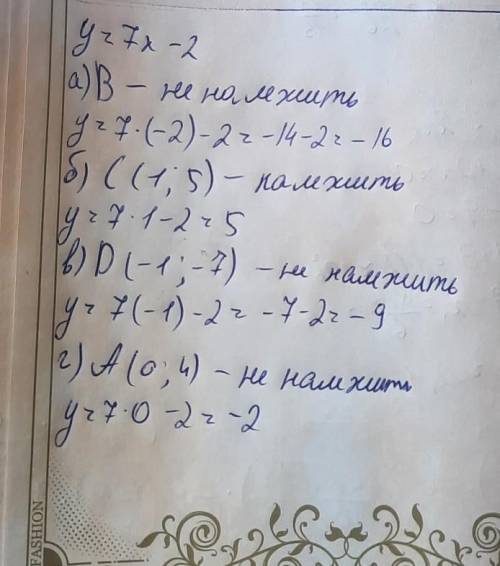 y = 7x - 2
a) B - не належить
y = 7·(-2) - 2 = -14 - 2 = -16
б) C (1; 5) - належить
y = 7·1 - 2 = 5
в) D (-1; -7) - не належить
y = 7(-1) - 2 = -7 - 2 = -9
г) A (0; 4) - не належить
y = 7·0 - 2 = -2
FASHION